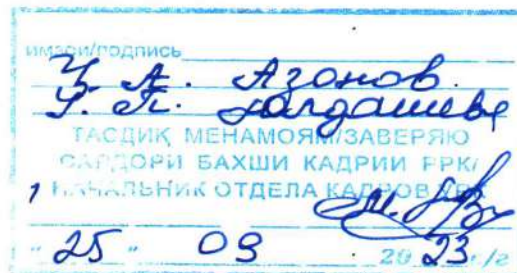 имзои/подпись
Ч. А. Азонов
Г. П. Юлдашева
ТАСДИҚ МЕНАМОЯМ/ЗАВЕРЯЮ
САРДОРИ БАХШИ КАДРИИ РРК/
НАЧАЛЬНИК ОТДЕЛА КАДРОВ УРК
" 25 " 09 20 23 с./г